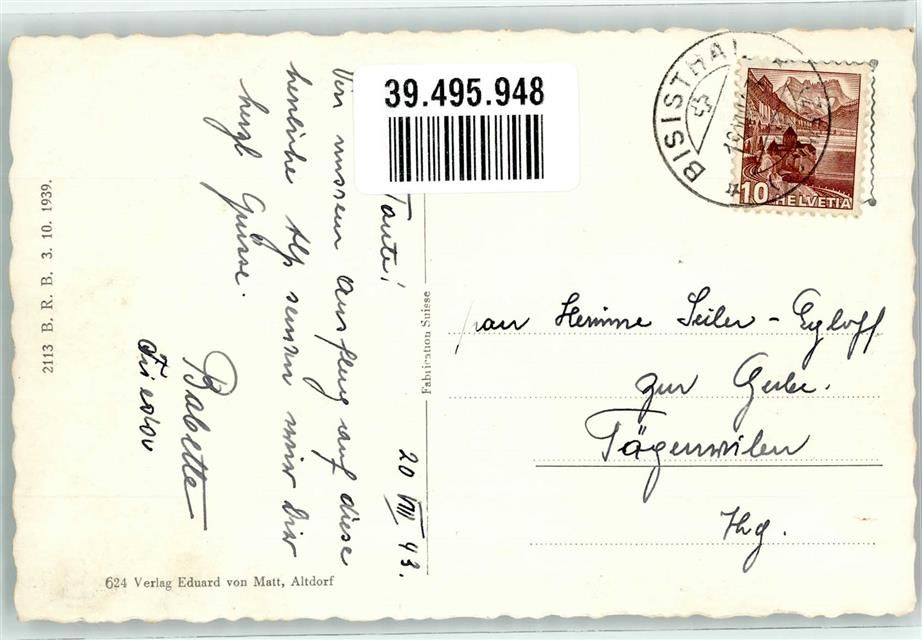 39.495.948
BISISTHAL
10 HELVETIA
Tante!
20 VIII 43.
Von unserem Ausflug auf diese
herrliche Alp senden wir Dir
herzl Grüsse.
Babette
Fridolin
Frau Hermine Seiler - Egloff
zur Gerbe.
Tägerwilen
Thg.
Fabrication Suisse
2113 B. R. B. 3. 10. 1939.
624 Verlag Eduard von Matt, Altdorf